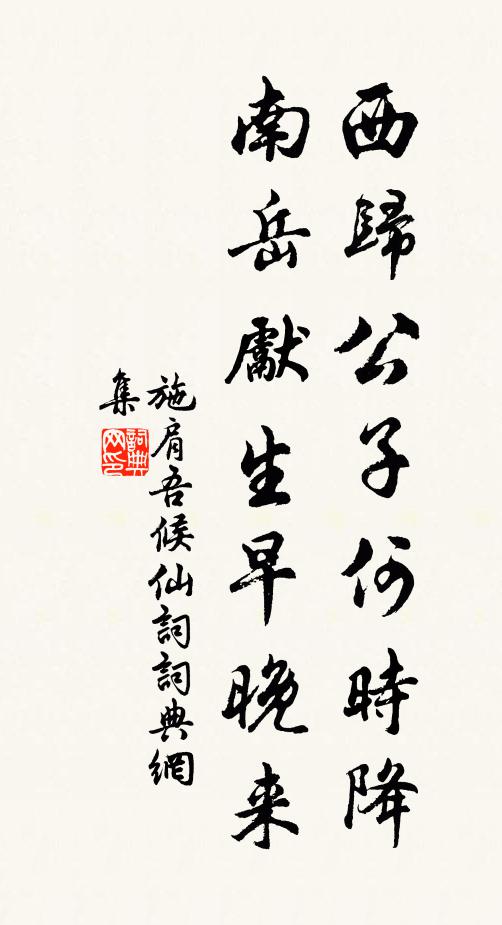 西歸公子何時降
南岳獻生早晚来
施肩吾候仙詞詞典網
集
詞典网印